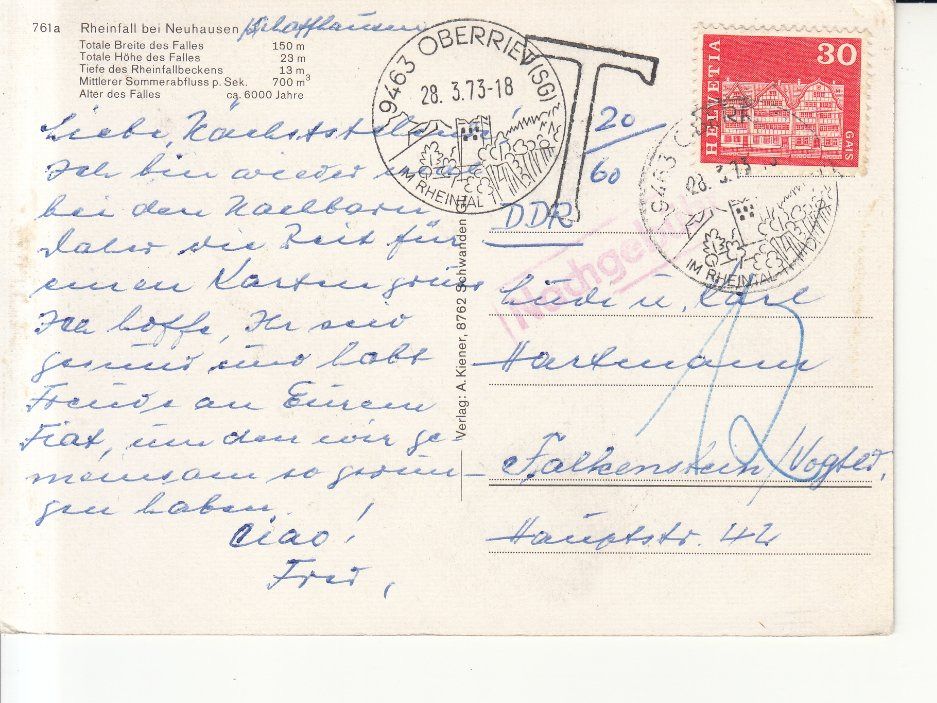 761a Rheinfall bei Neuhausen Schaffhausen
Totale Breite des Falles 150 m
Totale Höhe des Falles 23 m
Tiefe des Rheinfallbeckens 13 m
Mittlerer Sommerabfluss p. Sek. 700 m³
Alter des Falles ca. 6000 Jahre
Liebe
Ich bin wieder
bei den Nachbarn
Daher die Zeit für
einen Kartengruss
Ich hoffe, Ihr seid
gesund und habt
Freude an Eurem
Fiat, um den wir ge-
meinsam so gerun-
gen haben.
Ciao!
Fred,
Verlag: A. Kiener, 8762 Schwanden
9463 OBERRIET (SG)
28. 3.73-18
IM RHEINTAL
T
20
60
HELVETIA
30
GAIS
9463
28. 3.73
IM RHEINTAL
DDR
u. Karl
Hartmann
Falkenstein/Vogtld.
Hauptstr. 42